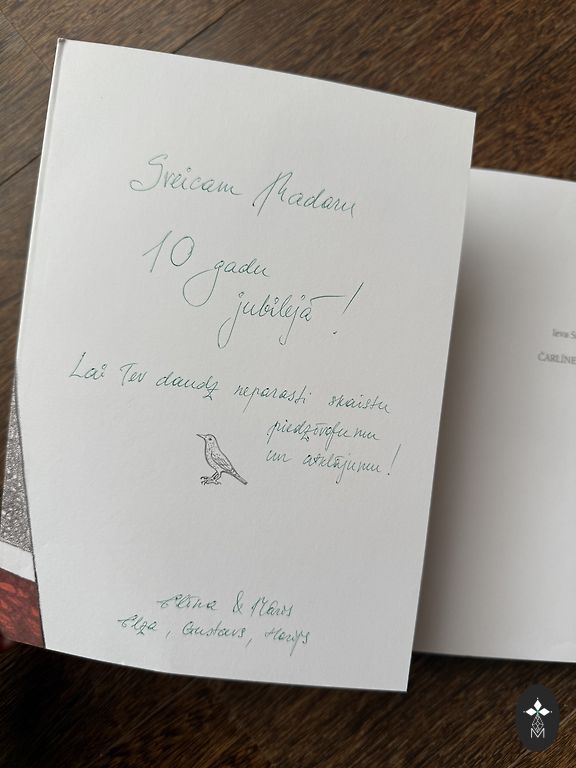 Sveicam Madaru
10 gadu
jubilejā!
Lai Tev daudz neparasti skaistu
piedzīvojumu
un atklājumu!
Elīna & Māris
Elza, Gustavs,
Ieva S
ČARLĪNE
M